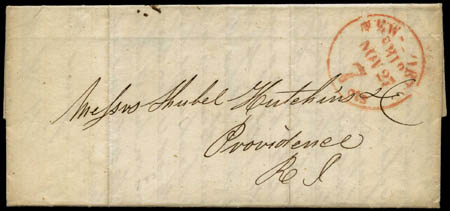 NEW-YORK
SHIP
NOV 23
7 cts
Messrs Shubel Hutchins & Co
Providence
R I